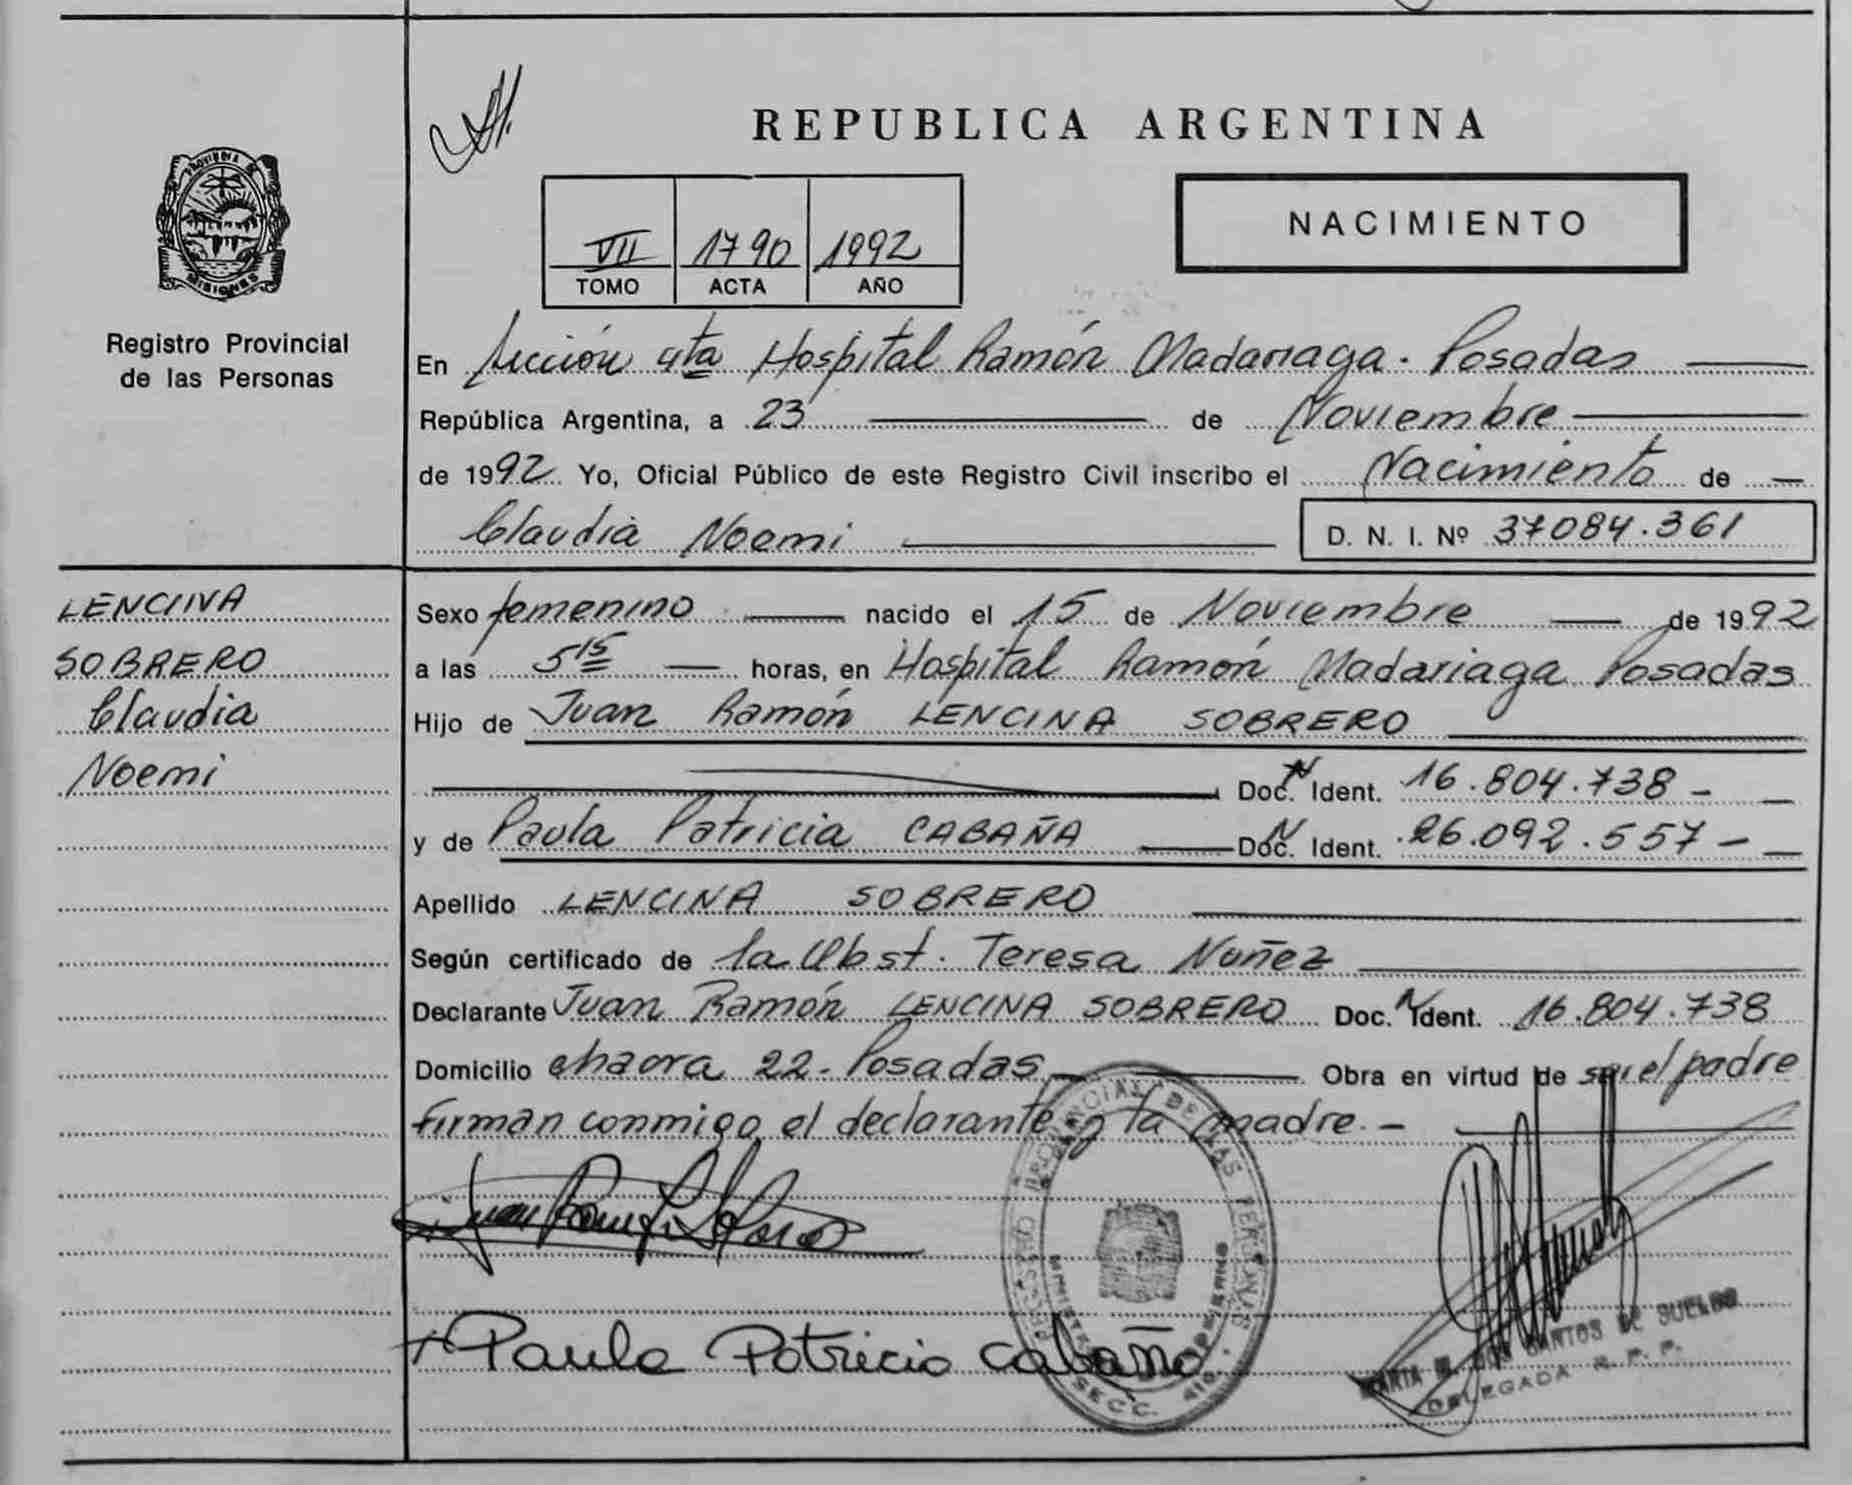 REPUBLICA ARGENTINA
PROVINCIA DE
MISIONES
Registro Provincial
de las Personas
VII 1790 1992
TOMO ACTA AÑO
NACIMIENTO
En sección 4ta Hospital Ramón Madariaga. Posadas
República Argentina, a 23 de Noviembre
de 1992 Yo, Oficial Público de este Registro Civil inscribo el Nacimiento de
Claudia Noemi
D. N. I. Nº 37084.361
LENCINA
SOBRERO
Claudia
Noemi
Sexo femenino nacido el 15 de Noviembre de 1992
a las 5 15 horas, en Hospital Ramón Madariaga Posadas
Hijo de Juan Ramón LENCINA SOBRERO
Doc. N Ident. 16.804.738 -
y de Paula Patricia CABAÑA Doc. N Ident. 26.092.557 -
Apellido LENCINA SOBRERO
Según certificado de la Obst. Teresa Nuñez
Declarante Juan Ramón LENCINA SOBRERO Doc. N Ident. 16.804.738
Domicilio chacra 22 - Posadas Obra en virtud de ser el padre
firman conmigo el declarante y la madre. -
Paula Patricia Cabaña
REGISTRO PROVINCIAL DE LAS PERSONAS
SECC. 4ta.
MARIA DOS SANTOS DE SUELDO
DELEGADA R. P. P.